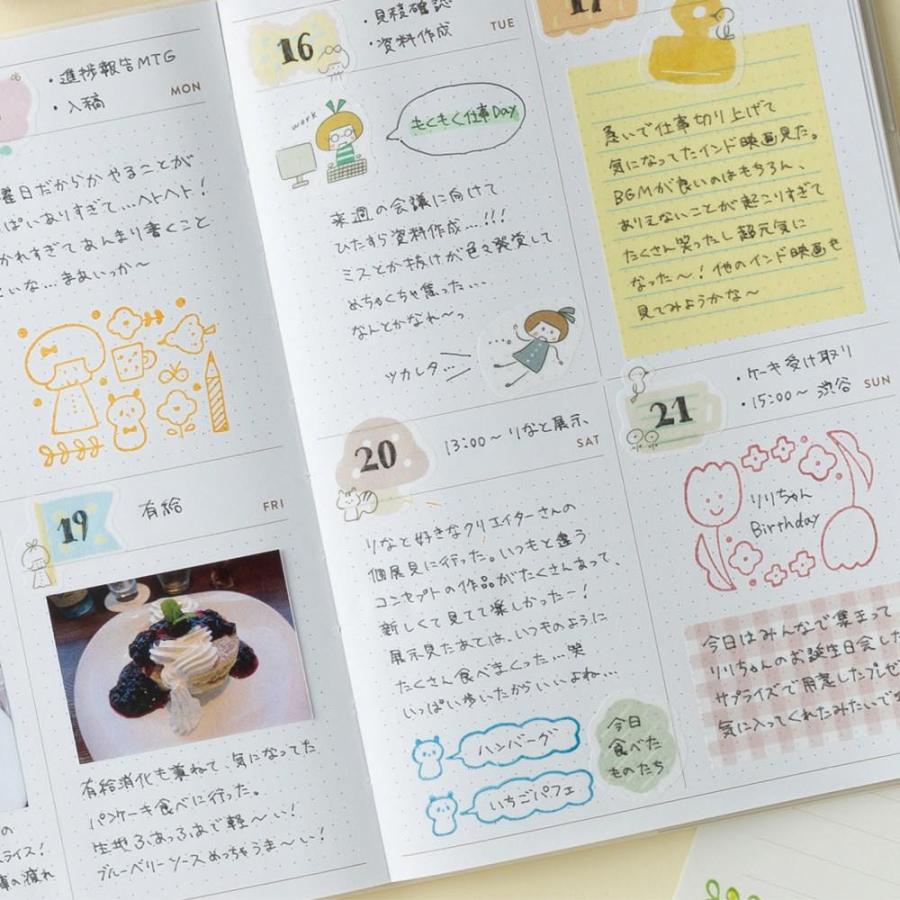 ・進捗報告MTG
・入稿
MON
曜日だからか やることが
ぱいありすぎて...ヘトヘト!
かれすぎてあんまり書くこと
いな...まぁいっか〜
16
・見積確認
・資料作成
TUE
work
もくもく仕事Day
来週の会議に向けて
ひたすら資料作成...!!!
ミスとか抜けが色々発覚して
めちゃくちゃ焦った...
なんとかなれ〜っ
ツカレタ...
17
急いで仕事切り上げて
気になってたインド映画見た。
BGMが良いのはもちろん、
ありえないことが起こりすぎて
たくさん笑ったし超元気に
なった〜!他のインド映画も
見てみようかな〜
19
有給
FRI
有給消化も兼ねて、気になってた
パンケーキ食べに行った。
生地ふあっふあで軽〜い!
ブルーベリーソースめっちゃうま〜い!
の
スライス!
事の疲れ
20
13:00〜 りなと展示
SAT
りなと好きなクリエイターさんの
個展見に行った。いつもと違う
コンセプトの作品がたくさんあって、
新しくて見てて楽しかったー!
展示見たあとは、いつものように
たくさん食べまくった...笑
いっぱい歩いたからいいよね...
ハンバーグ
いちごパフェ
今日
食べた
ものたち
21
・ケーキ受け取り
・15:00〜 渋谷
SUN
りりちゃん
Birthday
今日はみんなで集まって
りりちゃんのお誕生日会した
サプライズで用意したプレゼ
気に入ってくれたみたいで